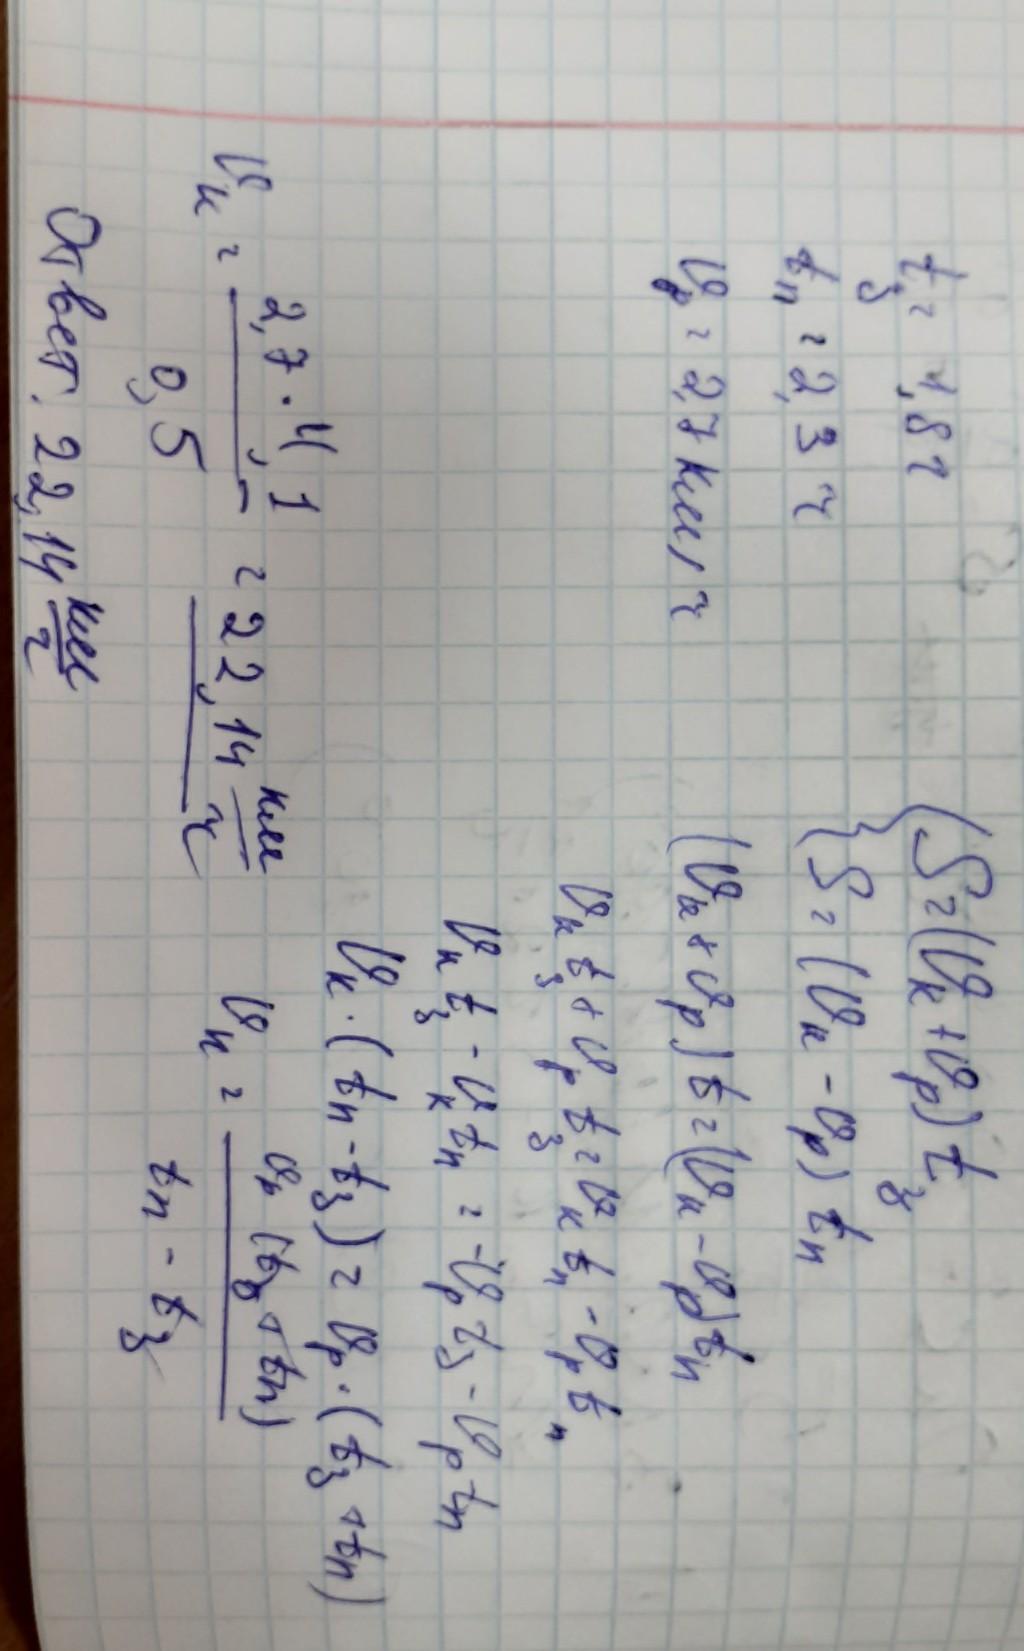 t_з = 1,8 ч
t_п = 2,3 ч
υ_р = 2,7 км/ч
{ S = (υ_к + υ_р) t_з
{ S = (υ_к - υ_р) t_п
(υ_к + υ_р) t = (υ_к - υ_р) t_п
υ_к t_з + υ_р t_з = υ_к t_п - υ_р t_п
υ_к t_з - υ_к t_п = -υ_р t_з - υ_р t_п
υ_к · (t_п - t_з) = υ_р · (t_з + t_п)
υ_к = υ_р (t_з + t_п) / (t_п - t_з)
υ_к = 2,7 · 4,1 / 0,5 = 22,14 км/ч
Ответ. 22,14 км/ч